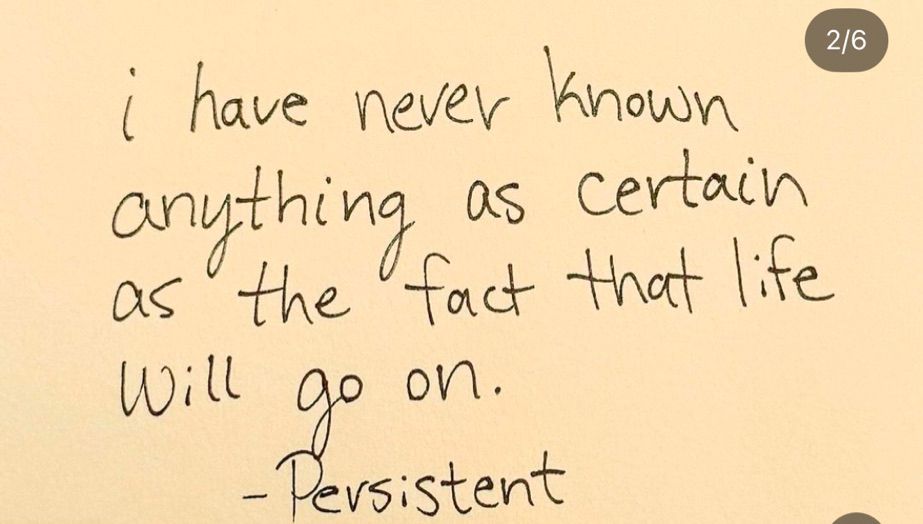 2/6
i have never known
anything as certain
as the fact that life
will go on.
-Persistent